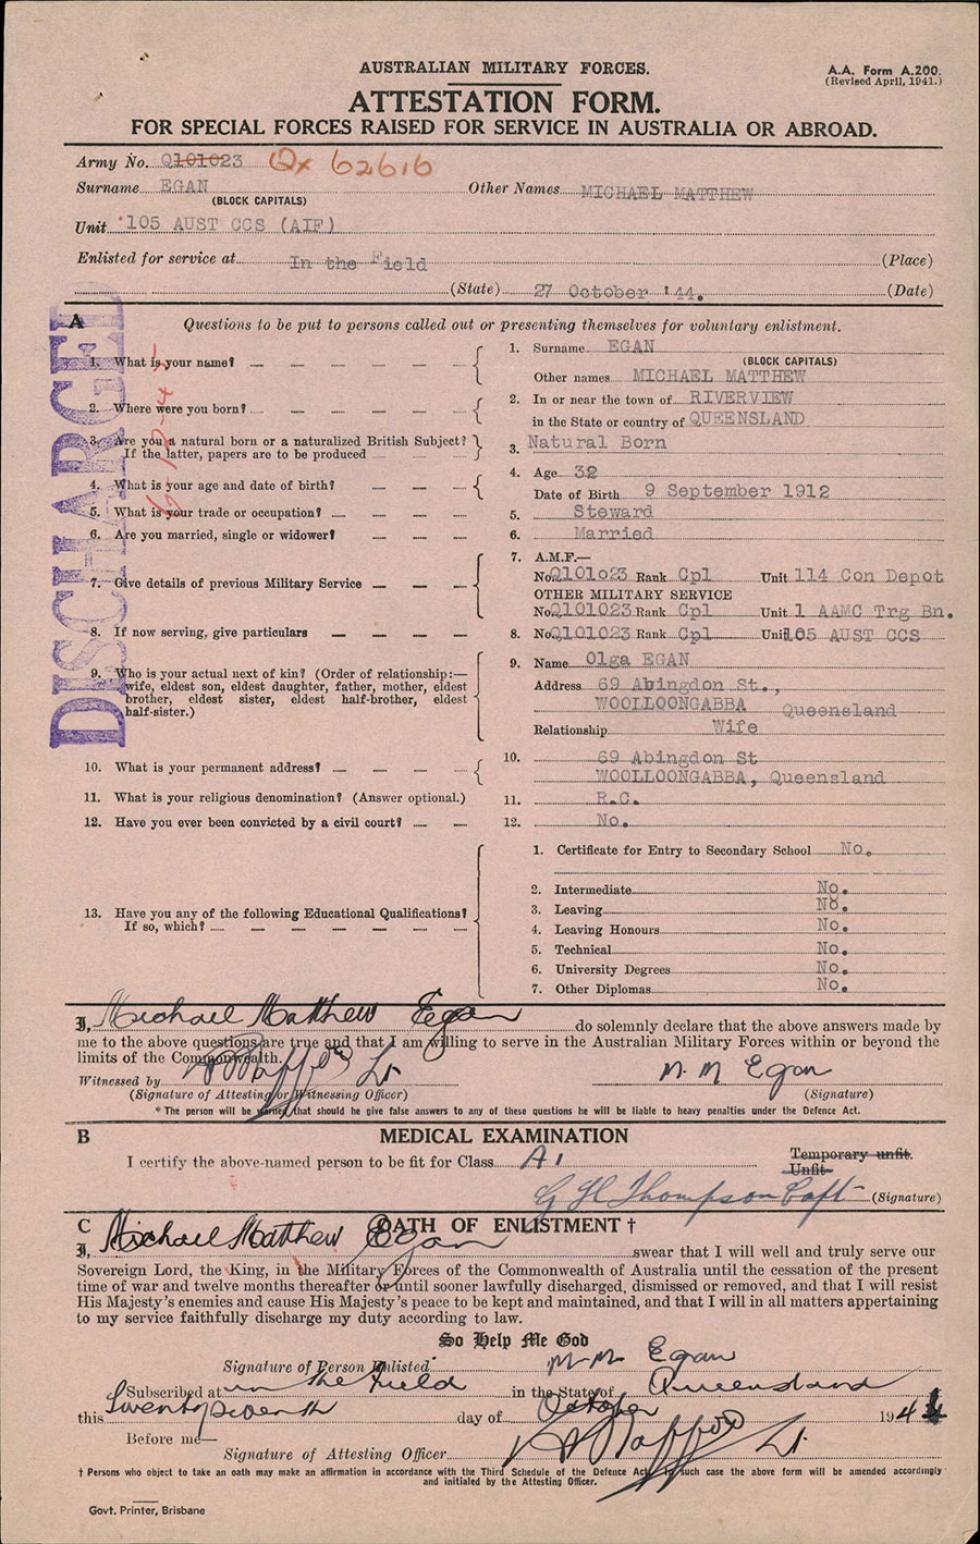 AUSTRALIAN MILITARY FORCES.
A.A. Form A.200.
(Revised April, 1941.)
ATTESTATION FORM.
FOR SPECIAL FORCES RAISED FOR SERVICE IN AUSTRALIA OR ABROAD.
Army No. Q101023 Qx 62616
Surname EGAN Other Names MICHAEL MATTHEW
(BLOCK CAPITALS)
Unit 105 AUST CCS (AIF)
Enlisted for service at In the Field (Place)
(State) 27 October '44. (Date)
DISCHARGED
A Questions to be put to persons called out or presenting themselves for voluntary enlistment.
1. What is your name? 1. Surname EGAN
(BLOCK CAPITALS)
Other names MICHAEL MATTHEW
2. Where were you born? 2. In or near the town of RIVERVIEW
in the State or country of QUEENSLAND
3. Are you a natural born or a naturalized British Subject? 3. Natural Born
If the latter, papers are to be produced
4. What is your age and date of birth? 4. Age 32
Date of Birth 9 September 1912
5. What is your trade or occupation? 5. Steward
6. Are you married, single or widower? 6. Married
7. Give details of previous Military Service 7. A.M.F.—
No. Q101023 Rank Cpl Unit 114 Con Depot
OTHER MILITARY SERVICE
No. Q101023 Rank Cpl Unit 1 AAMC Trg Bn.
8. If now serving, give particulars 8. No. Q101023 Rank Cpl Unit 105 AUST CCS
9. Who is your actual next of kin? (Order of relationship:— wife, eldest son, eldest daughter, father, mother, eldest brother, eldest sister, eldest half-brother, eldest half-sister.)
9. Name Olga EGAN
Address 69 Abingdon St.,
WOOLLOONGABBA Queensland
Relationship Wife
10. What is your permanent address? 10. 69 Abingdon St
WOOLLOONGABBA, Queensland
11. What is your religious denomination? (Answer optional.) 11. R.C.
12. Have you ever been convicted by a civil court? 12. No.
13. Have you any of the following Educational Qualifications?
If so, which?
1. Certificate for Entry to Secondary School No.
2. Intermediate No.
3. Leaving No.
4. Leaving Honours No.
5. Technical No.
6. University Degrees No.
7. Other Diplomas No.
I, Michael Matthew Egan do solemnly declare that the above answers made by
me to the above questions are true and that I am willing to serve in the Australian Military Forces within or beyond the
limits of the Commonwealth.
Witnessed by Lt M. M Egan
(Signature of Attesting or Witnessing Officer) (Signature)
* The person will be warned that should he give false answers to any of these questions he will be liable to heavy penalties under the Defence Act.
B MEDICAL EXAMINATION
I certify the above-named person to be fit for Class A1 Temporary unfit.
Unfit
G H Thompson Capt (Signature)
C OATH OF ENLISTMENT †
I, Michael Matthew Egan swear that I will well and truly serve our
Sovereign Lord, the King, in the Military Forces of the Commonwealth of Australia until the cessation of the present
time of war and twelve months thereafter or until sooner lawfully discharged, dismissed or removed, and that I will resist
His Majesty's enemies and cause His Majesty's peace to be kept and maintained, and that I will in all matters appertaining
to my service faithfully discharge my duty according to law.
So Help Me God
Signature of Person Enlisted M M Egan
Subscribed at in the Field in the State of Queensland
this Twenty seventh day of October 1944
Before me—
Signature of Attesting Officer Lt
† Persons who object to take an oath may make an affirmation in accordance with the Third Schedule of the Defence Act. In such case the above form will be amended accordingly
and initialed by the Attesting Officer.
Govt. Printer, Brisbane